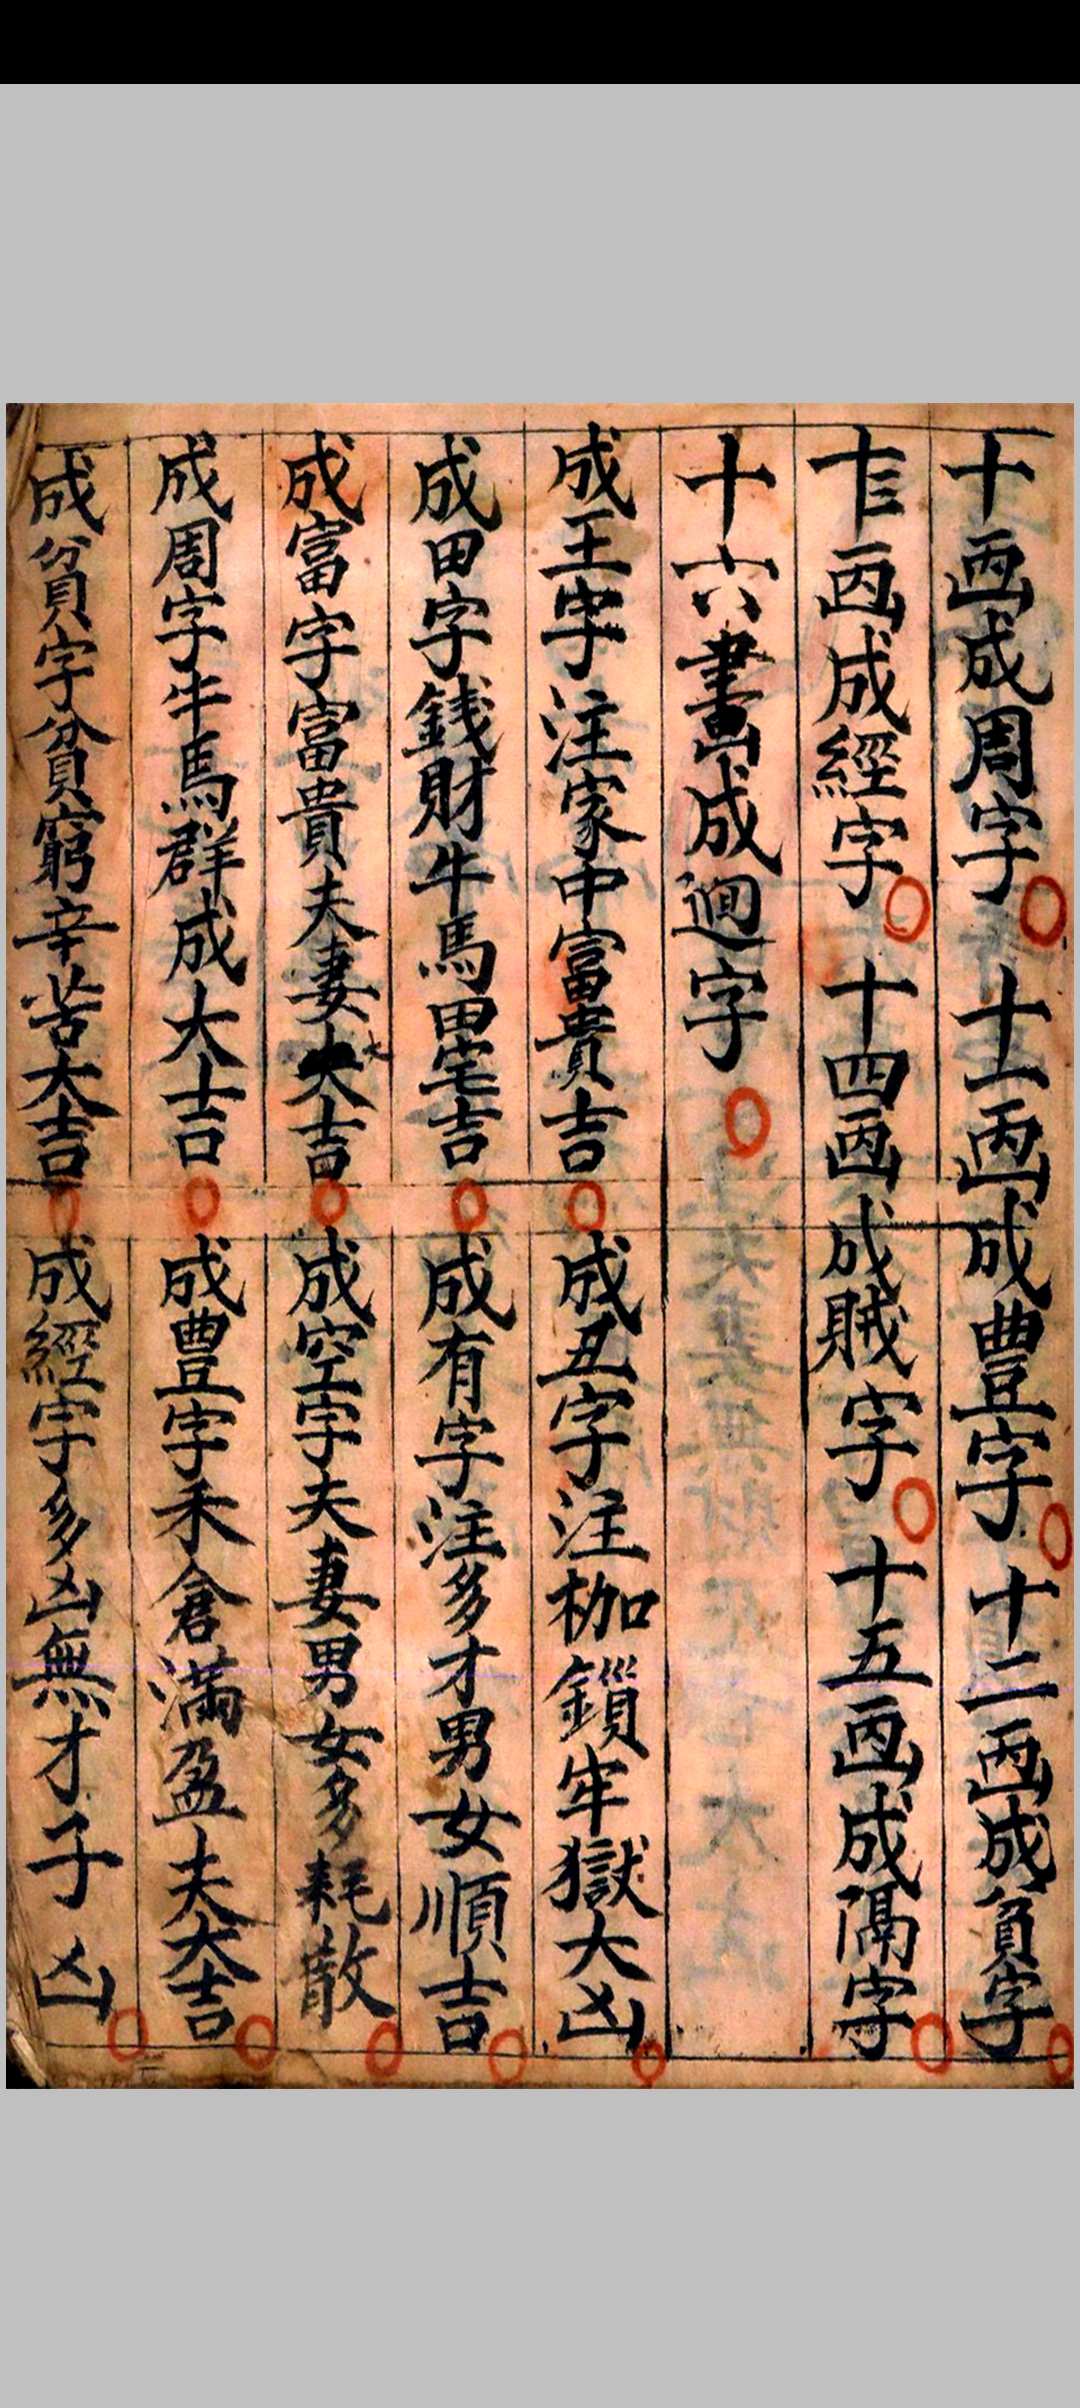 十画成周字 十一画成豊字 十二画成貧字
十三画成經字 十四画成賊字 十五画成隔字
十六畫成迴字
成王字注家中富貴吉
成丑字注枷鎖牢獄大凶
成田字錢財牛馬田宅吉
成有字注多才男女順吉
成富字富貴夫妻大吉
成空字夫妻男女多耗散
成周字牛馬群成大吉
成豊字禾倉滿盈夫大吉
成貧字貧窮辛苦大吉
成經字多凶無才子凶